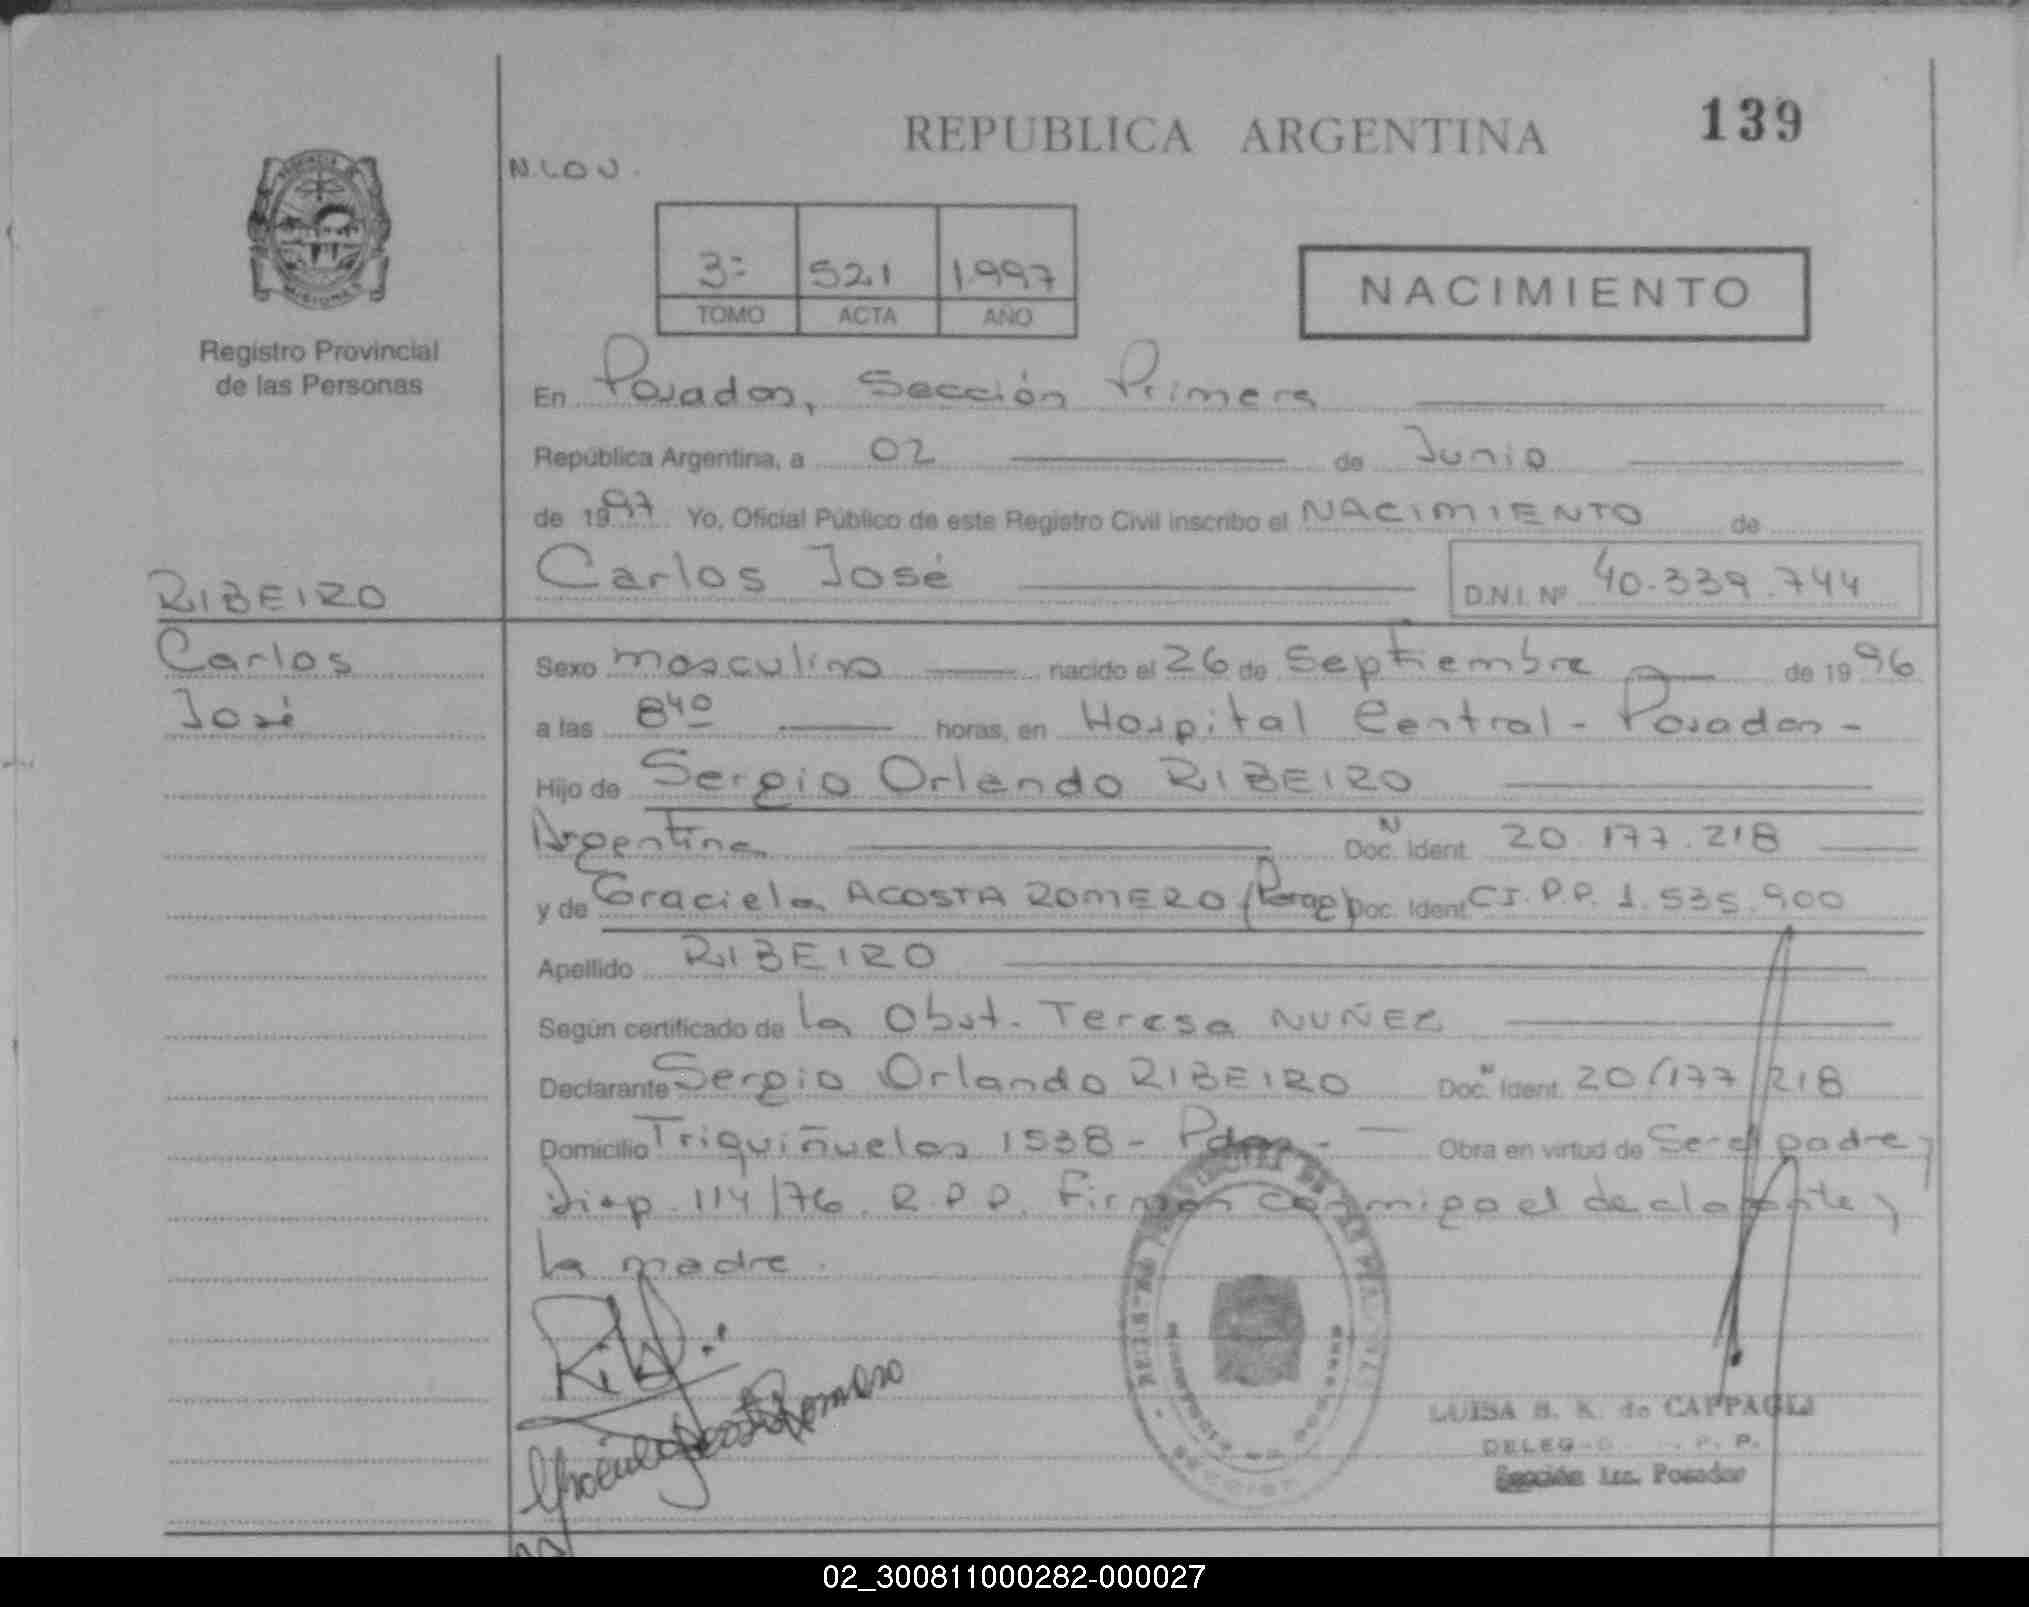 REPUBLICA ARGENTINA
139
N.LOU.
3= 521 1.997
TOMO ACTA AÑO
NACIMIENTO
MISIONES
Registro Provincial
de las Personas
En Posadas, Sección Primera
República Argentina, a 02 de Junio
de 1997 Yo, Oficial Público de este Registro Civil inscribo el NACIMIENTO de
Carlos José D.N.I. Nº 40.339.744
RIBEIRO
Carlos
José
Sexo masculino nacido el 26 de Septiembre de 1996
a las 8⁴⁰ horas, en Hospital Central - Posadas -
Hijo de Sergio Orlando RIBEIRO
Argentina Doc. N Ident. 20.177.218
y de Graciela ACOSTA ROMERO Doc. Ident. CI.P.P. 1.535.900
Apellido RIBEIRO
Según certificado de la Obst. Teresa NUÑEZ
Declarante Sergio Orlando RIBEIRO Doc. N Ident. 20/177/218
Domicilio Triquiñuelas 1538 - Pdas - Obra en virtud de Ser el padre y
Disp. 114/76. R.P.P. Firman conmigo el declarante y
la madre.
LUISA B. K. de CAPPAGLI
DELEG P. P.
Sección 1ra. Posadas
02_300811000282-000027